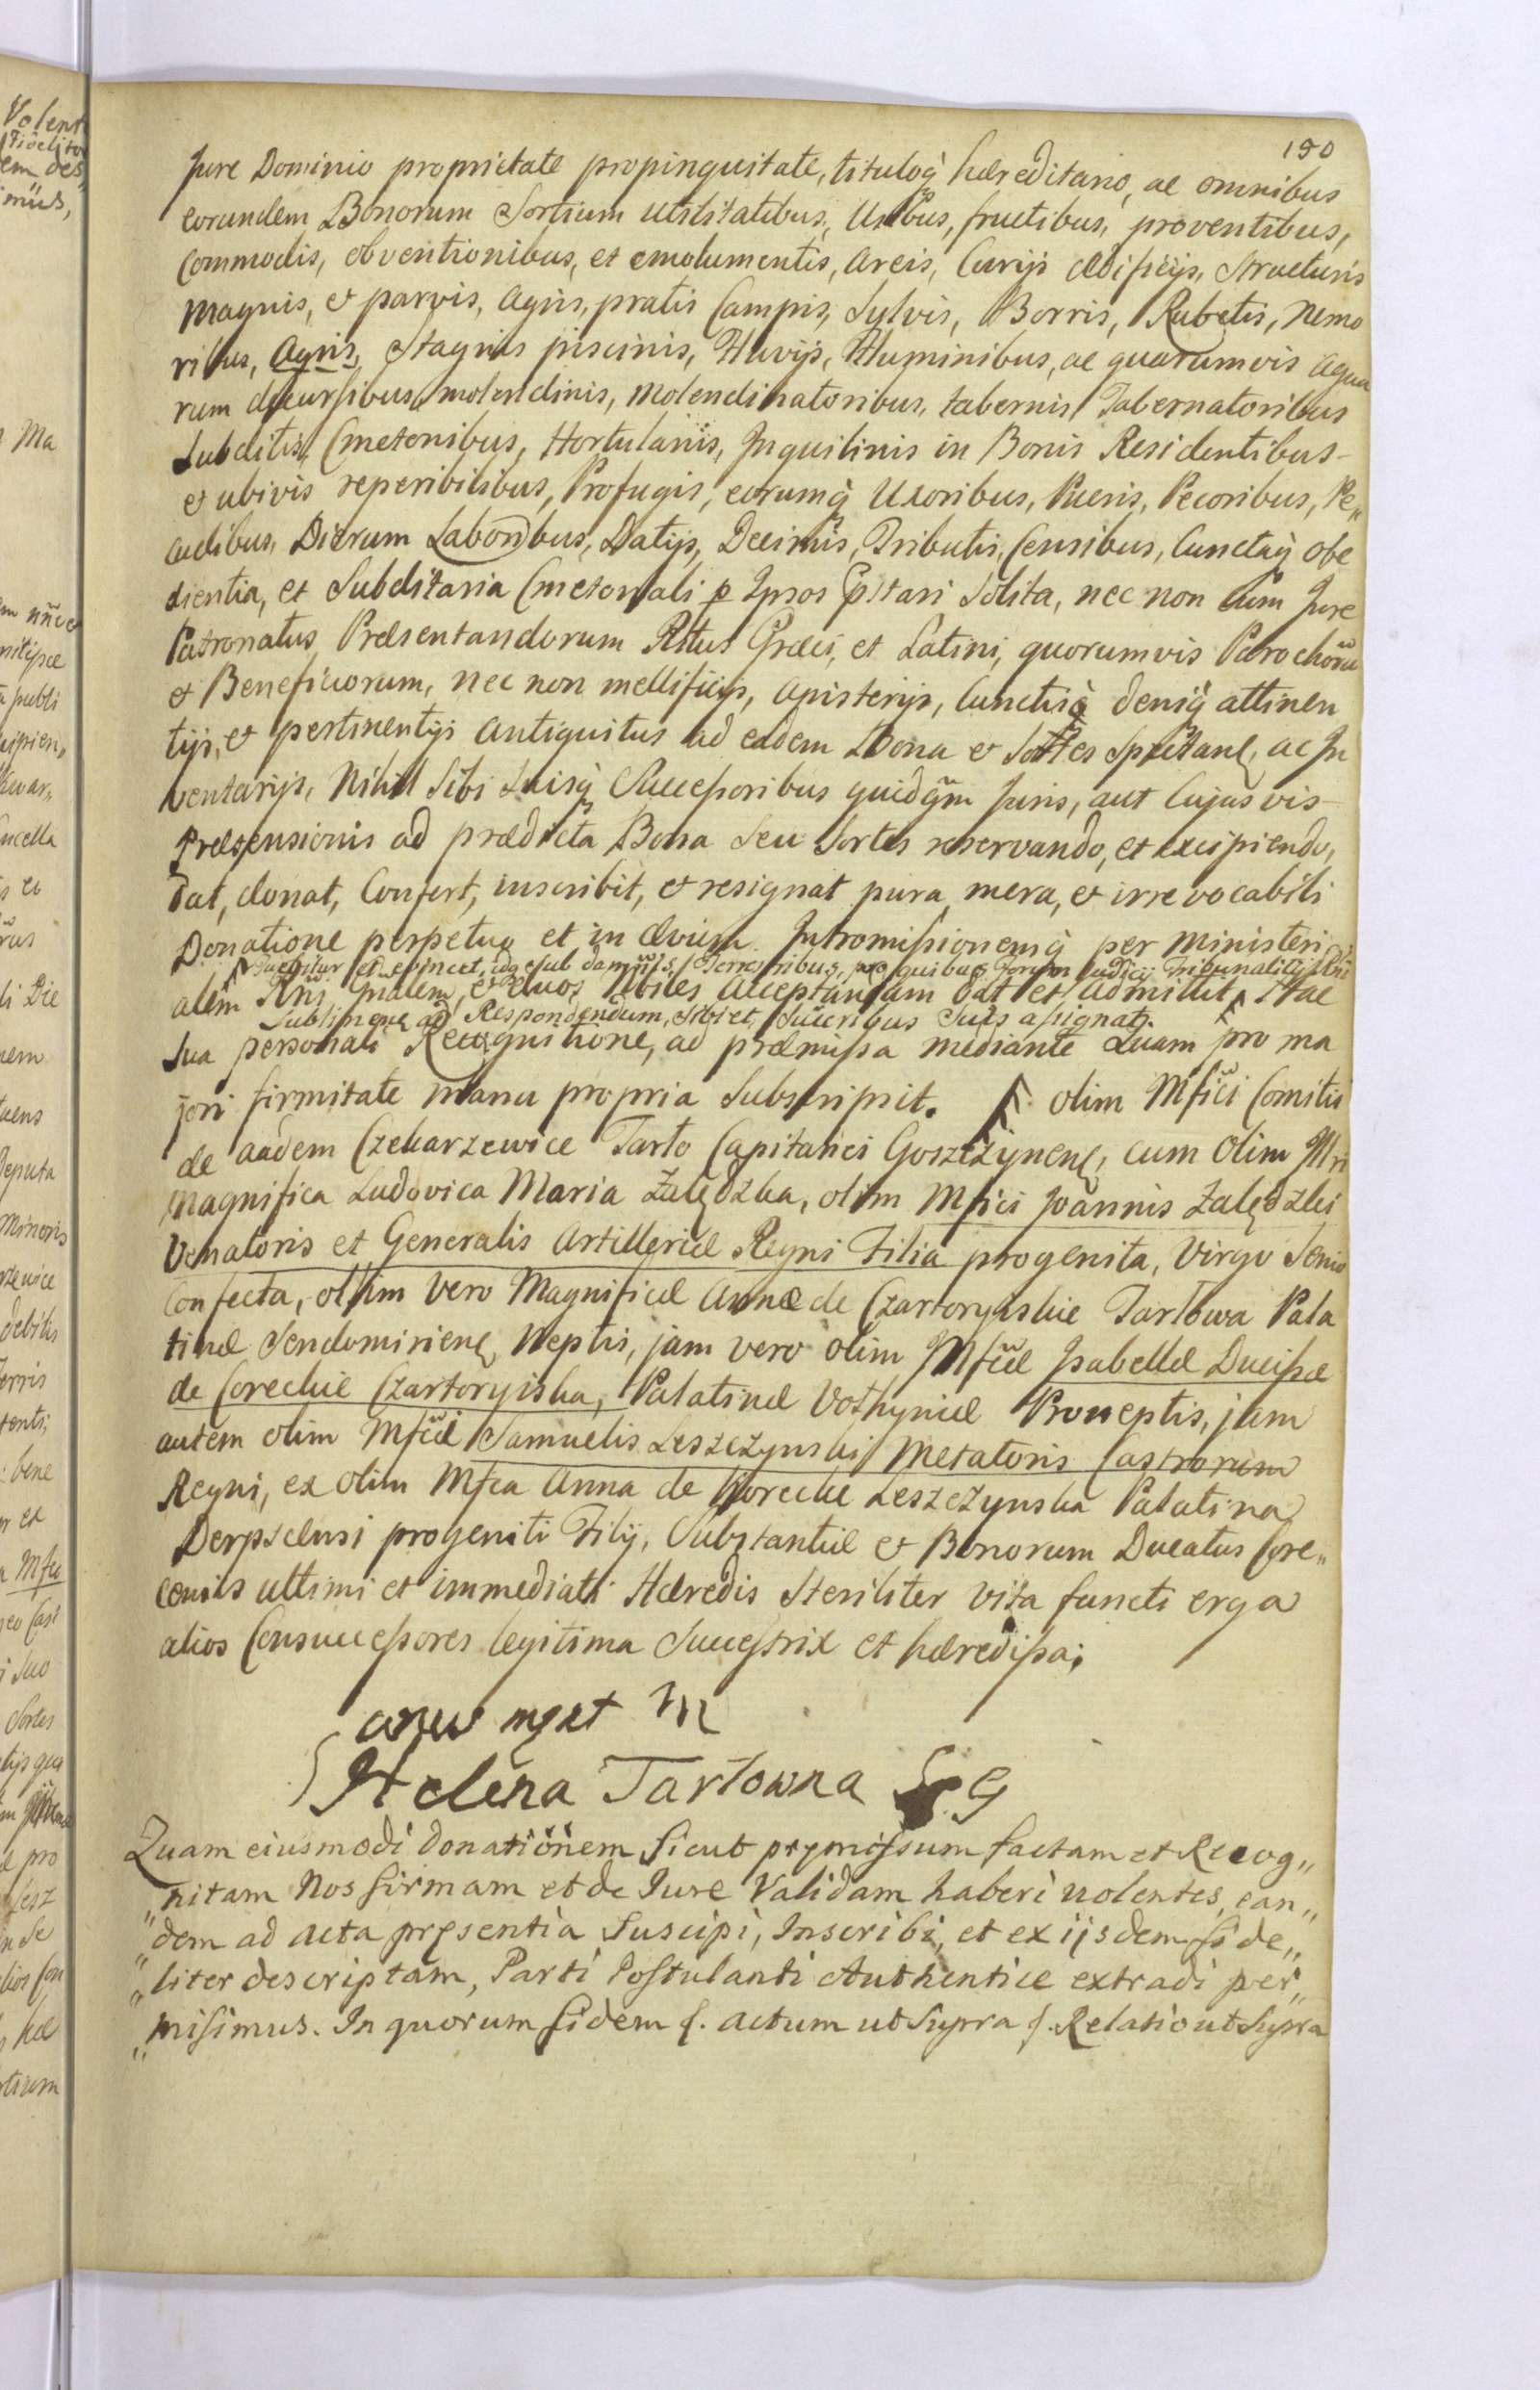 190
Jure Dominio proprietate propinquitate, tituloq̀ hæreditario, ac omnibus
eorundem Bonorum Sortium utilitatibus, Usibus, fructibus, proventibus,
Commodis, obventionibus, et emolumentis, areis, Curijs ædificijs, Structuris
magnis, et parvis, agris, pratis Campis, Sylvis, Borris, Rubetis, Nemo
ribus, Agris, Stagnis piscinis, Fluvijs, Fluminibus, ac quarumvis aqua
rum decursibus, molendinis, Molendinatoribus, tabernis Tabernatoribus
Subditis, Cmetonibus, Hortulanis, Inquilinis in Bonis Residentibus-
et ubivis reperibilibus, Profugis, eorumq̀ Uxoribus, Pueris, Pecoribus, Pe„
cudibus, Dierum Laboribus, Datijs, Decimis, Tributis, Censibus, Cunctaq̀ obe
dientia, et Subditaria Cmetonali p Ipsos pstari Solita, nec non Cum Jure
Patronatus, Præsentandorum Ritus Græci, et Latini, quorumvis Parochorũ
et Beneficiorum, nec non mellificijs, Apisterijs, Cunctisq̀ deniq̀ attinen
tijs, et pertinentijs antiquitus ad eadem Bona et Sortes Spectanĕ, ac In
ventarijs, Nihil Sibi Suisq̀ Successoribus quidq̃m Juris, aut Cujusvis-
Prætensionis ad prædicta Bona Seu Sortes reservando, et excipiendo,
dat, donat, Confert, inscribit, et resignat pura, mera, et irrevocabili
Donatione perpetua et in ævum. Intromissionemq̀ per Ministeri
alem Rñi gñalem, et duos Nobiles Acceptandam dat et admittit Hac
Sublimenĕ ad Respondendum, Sibi et Succribus Suis assignat.
Sua personali Recognitione, ad præmissa mediante Quam pro ma
jori firmitate manu propria Subscripsit. olim Mfici Comitis
de eadem Czekarzewice Tarło Capitanei Goszczynenĕ, cum olim
Magnifica Ludovica Maria Załędzka, olim Mfici Joannis Załędzki
Venatoris et Generalis Artilleriæ Regni Filia progenita, Virgo Senio
Confecta, olim vero Magnificæ Annæ de Czartoryiskie Tarłowa Pala
tinæ Sendomirienĕ, Neptis, jam vero olim Mficæ Isabellæ Ducissæ
de Coreckie Czartoryiska, Palatinæ Vołhyniæ Proneptis, jam
autem olim Mfici Samuelis Leszczynski Metatoris Castrorum
Regni, ex olim Mfca Anna de Koreckie Leszczynska Palatina
Derpstensi progeniti Filij, Substantiæ et Bonorum Ducatus Core„
censis ultimi et immediati Hæredis Steriliter vita functi erga
alios Consuccessores legitima Successtrix et hæredissa;
Helena Tarlowna S G
Quam eiusmodi donationem Sicut premissum factam et Recog„
„nitam Nos firmam et de Jure Validam haberi volentes, ean„
„dem ad acta presentia Suscipi, Inscribi, et ex iisdem fide„
„liter descriptam, Parti Postulanti Authentice extradi per„
„misimus. In quorum fidem f. actum ut Supra f. Relatio ut Supra